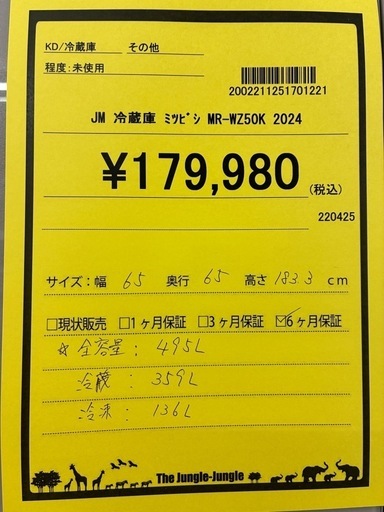 KD/冷蔵庫 その他
程度:未使用
2002211251701221
JM 冷蔵庫 ﾐﾂﾋﾞｼ MR-WZ50K 2024
¥179,980(税込)
220425
サイズ:幅 65 奥行 65 高さ 183.3 cm
□現状販売 □1ヶ月保証 □3ヶ月保証 ☑6ヶ月保証
☆全容量: 495L
冷蔵: 359L
冷凍: 136L
The Jungle-Jungle